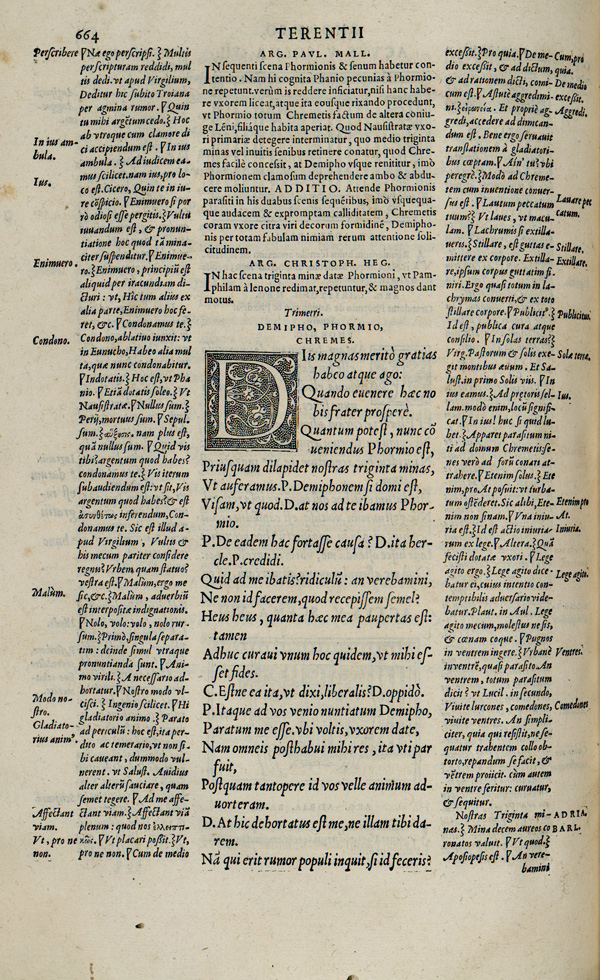 664
TERENTII
Perscribere
In ius am-
bula.
Ius.
Enimuero.
Condono.
Malùm.
Modo no-
stro.
Gladiato-
rius animº.
Affectant
viam.
Vt, pro ne
non.
Næ ego perscripsi. Multis
perscripturam reddidi, mul
tis dedi. vt apud Virgilium,
Deditur hic subito Troiana
per agmina rumor. Quin
tu mihi argētum cedo. Hoc
ab vtroque cum clamore di
ci accipiendum est. In ius
ambula. Ad iudicem ea-
mus scilicet. nam ius, pro lo-
co est. Cicero, Quin te in iu-
re cōspicio. Enimuero si por
rò odiosi esse pergitis. Vultu
iuuandum est, & pronun-
tiatione hoc quod tā mina-
citer suspenditur. Enimue-
ro. Enimuero, principiū est
aliquid per iracundiam di-
cturi: vt, Hic tum alius ex
alia parte, Enimuero hoc fe-
ret, &c. Condonamus te.
Condono, ablatiuo iunxit: vt
in Eunucho, Habeo alia mul
ta, quæ nunc condonabitur.
Indotatis. Hoc est, vt Pha
nio. Etiā dotatis soleo. Vt
Nausistratæ. Nullus sum.
Perij, mortuus sum. Sepul.
sum. nam plus est,
quā nullus sum. Quid vis
tibi? argentum quod habes?
condonamus te. Vis iterum
subaudiendum est: vt sit, Vis
argentum quod habes? & est
inferendum, Con-
donamus te. Sic est illud a-
pud Virgilium, Vultis &
his mecum pariter considere
regnis? Vrbem, quam statuo?
vestra est. Malùm, ergo me
sic, &c. Malùm, aduerbiū
est interpositæ indignationis.
Nolo, volo: volo, nolo rur-
sum. Primò, singula separa-
tim: deinde simul vtraque
pronuntianda sunt. Ani-
mo virili. A necessario ad-
hortatur. Nostro modo vl-
cisci. Ingenio scilicet. Hi
gladiatorio animo. Parato
ad periculū: hoc est, ita per-
dito ac temerario, vt non si-
bi caueant, dummodo vul-
nerent. vt Salust. Auidius
alter alterū sauciare, quam
semet tegere. Ad me affe-
ctant viam. Affectant viā
plenum: quod nos
Vt placari possit. Vt,
pro ne non. Cum de medio
ARG. PAVL. MALL.
IN sequenti scena Phormionis & senum habetur con-
tentio. Nam hi cognita Phanio pecuniā à Phormio-
ne repetunt. verùm is reddere inficiatur, nisi hanc habe-
re vxorem liceat, atque ita eousque rixando procedunt,
vt Phormio totum Chremetis factum de altera coniu-
ge Léni, filiáque habita aperiat. Quod Nausistratæ vxo-
ri primariæ detegere interminatur, quo medio triginta
minas vel inuitis senibus retinere conatur, quod Chre-
mes facilè concessit, at Demipho vsque renititur, imò
Phormionem clamosum deprehendere ambo & abdu-
cere moliuntur. ADDITIO. Attende Phormionis
parasiti in his duabus scenis sequētibus, imò vsquequa-
que audacem & expromptam calliditatem, Chremetis
coram vxore citra viri decorum formidinē, Demipho-
nis per totam fabulam nimiam rerum attentione soli-
citudinem.
ARG. CHRISTOPH. HEG.
IN hac scena triginta minæ datæ Phormioni, vt Pam-
philam à lenone redimat, repetuntur, & magnos dant
motus.
Trimetri.
DEMIPHO, PHORMIO,
CHREMES.
DIis magnas meritò gratias
habeo atque ago:
Quando euenere hæc no
bis frater prosperè.
Quantum potest, nunc cō
ueniendus Phormio est,
Priusquam dilapidet nostras triginta minas,
Vt auferamus. P. Demiphonem si domi est,
Visam, vt quod. D. at nos ad te ibamus Phor-
mio.
P. De eadem hac fortasse causa? D. ita her-
cle. P. credidi.
Quid ad me ibatis? ridiculū: an verebamini,
Ne non id facerem, quod recepissem semel?
Heus heus, quanta hæc mea paupertas est:
tamen
Adhuc curaui vnum hoc quidem, vt mihi es-
set fides.
C. Estne ea ita, vt dixi, liberalis? D. oppidò.
P. Itaque ad vos venio nuntiatum Demipho,
Paratum me esse. vbi voltis, vxorem date,
Nam omneis posthabui mihi res, ita vti par
fuit,
Postquam tantopere id vos velle animum ad-
uorteram.
D. At hic dehortatus est me, ne illam tibi da-
rem.
Nā qui erit rumor populi inquit, si id feceris?
excessit. Pro quia. De me-
dio excessit, & ad dictum,
& ad rationem dicti, comi-
cum est. Astutè aggredimi-
ni. Et propriè ag-
gredi, accedere ad dimican-
dum est. Bene ergo seruauit
translationem à gladiatori-
bus cœptam. Ain' tu? vbi
peregrè. Modò ad Chreme-
tem cum inuentione conuer-
sus est. Lautum peccatum
tuum? Vt laues, vt macu-
lam. Lachrumis si extilla-
ueris. Stillare, est guttas e-
mittere ex corpore. Extilla-
re, ipsum corpus guttatim fi-
niri. Ergo quasi totum in la-
chrymas conuerti, & ex toto
stillare corpore. Publicitº.
Id est, publica cura atque
consilio. In solas terras?
Virg. Pastorum & solis exe-
git montibus æuum. Et Sa-
lust. in primo Solis viis. In
ius eamus. Ad prætoris sel-
lam. modò enim, locū signifi-
cat. In ius? huc si quid lu-
bet. Apparet parasitum ni-
ti ad domum Chremetis se-
nes verò ad forū conari at-
trahere. Etenim solus. Ete
nim, pro At posuit: vt turba-
tum ostēderet. Sic alibi, Ete-
nim non sinam. Vna iniu-
ria est. Id est actio iniuria-
rum ex lege. Altera. Quā
fecisti dotatæ vxori. Lege
agito ergo. Lege agito dice-
batur ei, cuius intentio con-
temptibilis aduersario vide-
batur. Plaut. in Aul. Lege
agito mecum, molestus ne sis,
& cœnam coque. Pugnos
in ventrem ingere. Vrbanè
inuentrē, quasi parasito. An
ventrem, totum parasitum
dicit? vt Lucil. in secundo,
Viuite lurcones, comedones,
viuite ventres. An simpli-
citer, quia qui resistit, ne se-
quatur trahentem collo ob-
torto, repandum se facit, &
vētrem proiicit. cùm autem
in ventre feritur: curuatur,
& sequitur.
Nostras Triginta mi-
nas. Mina decem aureos co
ronatos valuit. Vt quod.
Aposiopesis est. An vere-
bamini
Cum, pro
quia.
De medio
excessit.
Aggredi.
Lauare pec
catum.
Stillare.
Extillare.
Publicitus.
Sola terra.
Ius.
Etenim pro
At.
Iniuria.
Lege agito.
Ventres.
Comedones
ADRIA.
BARL.